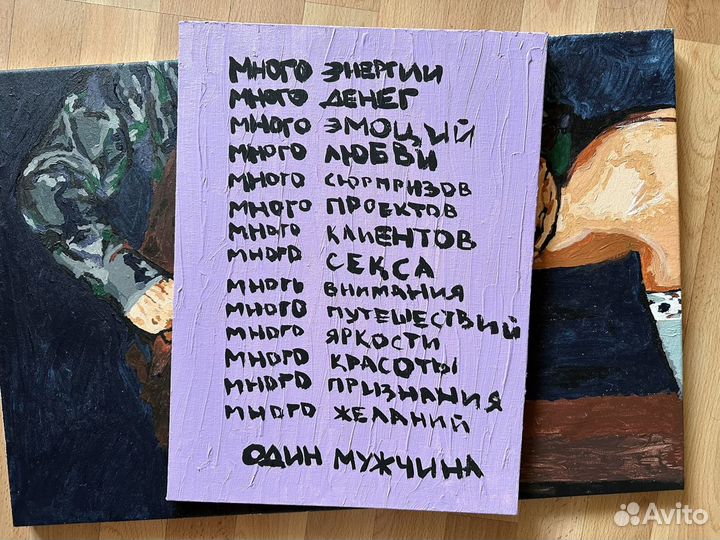 много энергии
много денег
много эмоций
много любви
много сюрпризов
много проектов
много клиентов
много секса
много внимания
много путешествий
много яркости
много красоты
много признания
много желаний
один мужчина
Avito